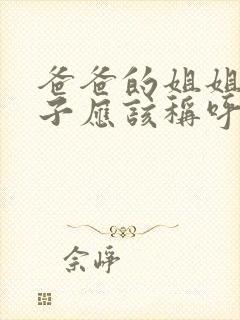 爸爸的姐姐
子应该称呼
佘峥